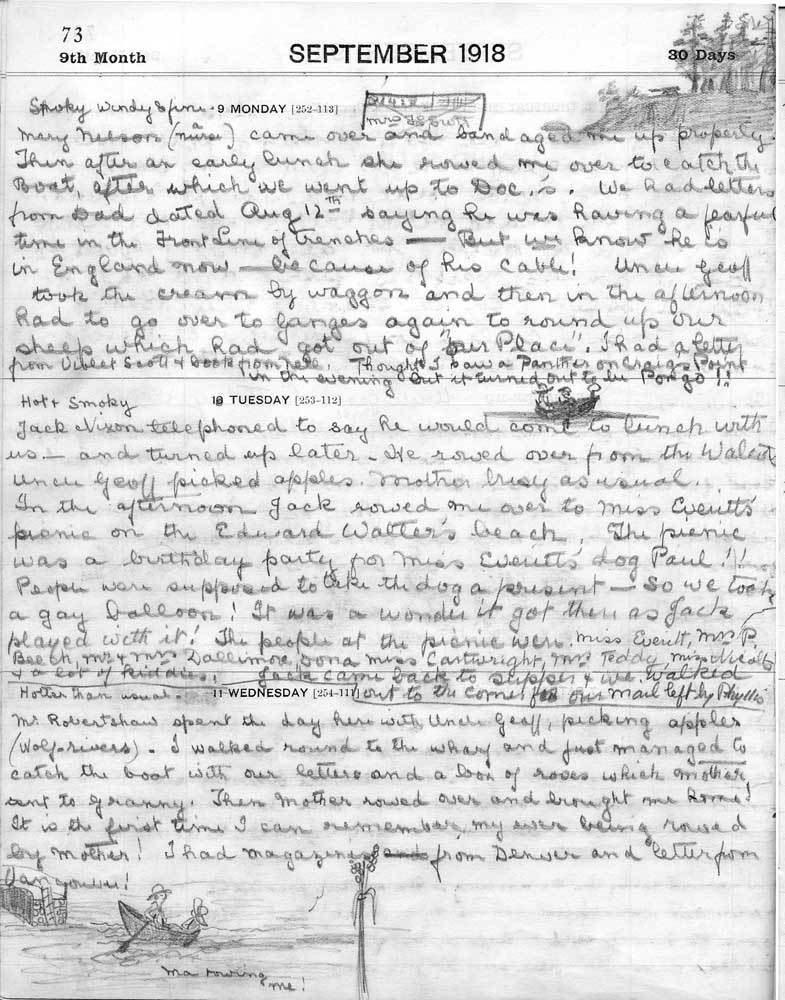 73
9th Month SEPTEMBER 1918 30 Days
Smoky windy & fine. 9 MONDAY [252-113]
Mary Nelson (nurse) came over and bandaged me up properly.
Then after an early lunch she rowed me over to catch the
Boat, after which we went up to Doc.'s. We had letters
from Dad dated Aug 12th saying he was having a fearful
time in the Front Line of trenches — But we know he is
in England now — because of his cable! Uncle Geoff
took the cream by waggon and then in the afternoon
had to go over to Ganges again to round up our
sheep which had got out of "our Place". I had a letter
from Violet Scott & book from here. Thought I saw a Panther on Craigs Point
in the evening but it turned out to be Pongo!!
Hot & Smoky 10 TUESDAY [253-112]
Jack Nixon telephoned to say he would come to lunch with
us — and turned up later. He rowed over from the Walcot
Uncle Geoff picked apples. Mother busy as usual.
In the afternoon Jack rowed me over to Miss Everitts'
picnic on the Edward Walter's beach. The picnic
was a birthday party for Miss Everitts' dog Paul!!
People were supposed to take the dog a present — So we took
a gay balloon! It was a wonder it got there as Jack
played with it! The people at the picnic were. Miss Everitt, Mrs P.
Beech, Mr & Mrs Dallimore, Dona Miss Cartwright, Mrs Teddy, Miss Nicolls
& a lot of kiddies. Jack came back to supper & we walked
out to the corner for our mail left by Phyllis
Hotter than usual. 11 WEDNESDAY [254-111]
Mr. Robertshaw spent the day here with Uncle Geoff, picking apples
(Wolf-rivers). I walked round to the wharf and just managed to
catch the boat with our letters and a box of roses which Mother
sent to Granny. Then Mother rowed over and brought me home!
It is the first time I can remember, my ever being rowed
by Mother! I had magazines from Denver and letter from
Vancouver!
Ma rowing
me!